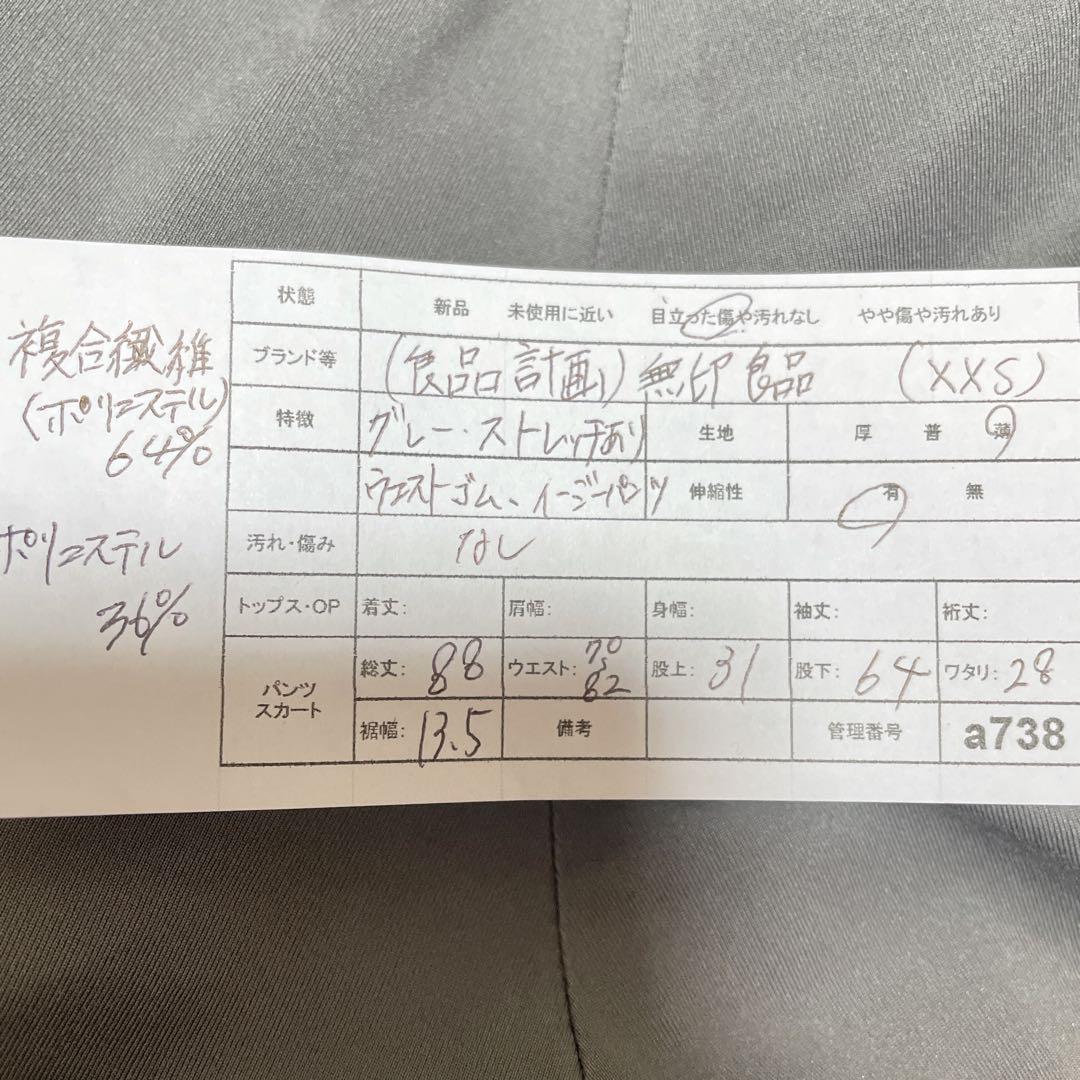 複合繊維
(ポリエステル)
64%
ポリエステル
36%
状態 新品 未使用に近い 目立った傷や汚れなし やや傷や汚れあり
ブランド等 (良品計画) 無印良品 (XXS)
特徴 グレー・ストレッチあり 生地 厚 普 薄
ウエストゴム、イージーパンツ 伸縮性 有 無
汚れ・傷み なし
トップス・OP 着丈: 肩幅: 身幅: 袖丈: 裄丈:
パンツ スカート 総丈: 88 ウエスト: 70 ~ 82 股上: 31 股下: 64 ワタリ: 28
裾幅: 13.5 備考 管理番号 a738